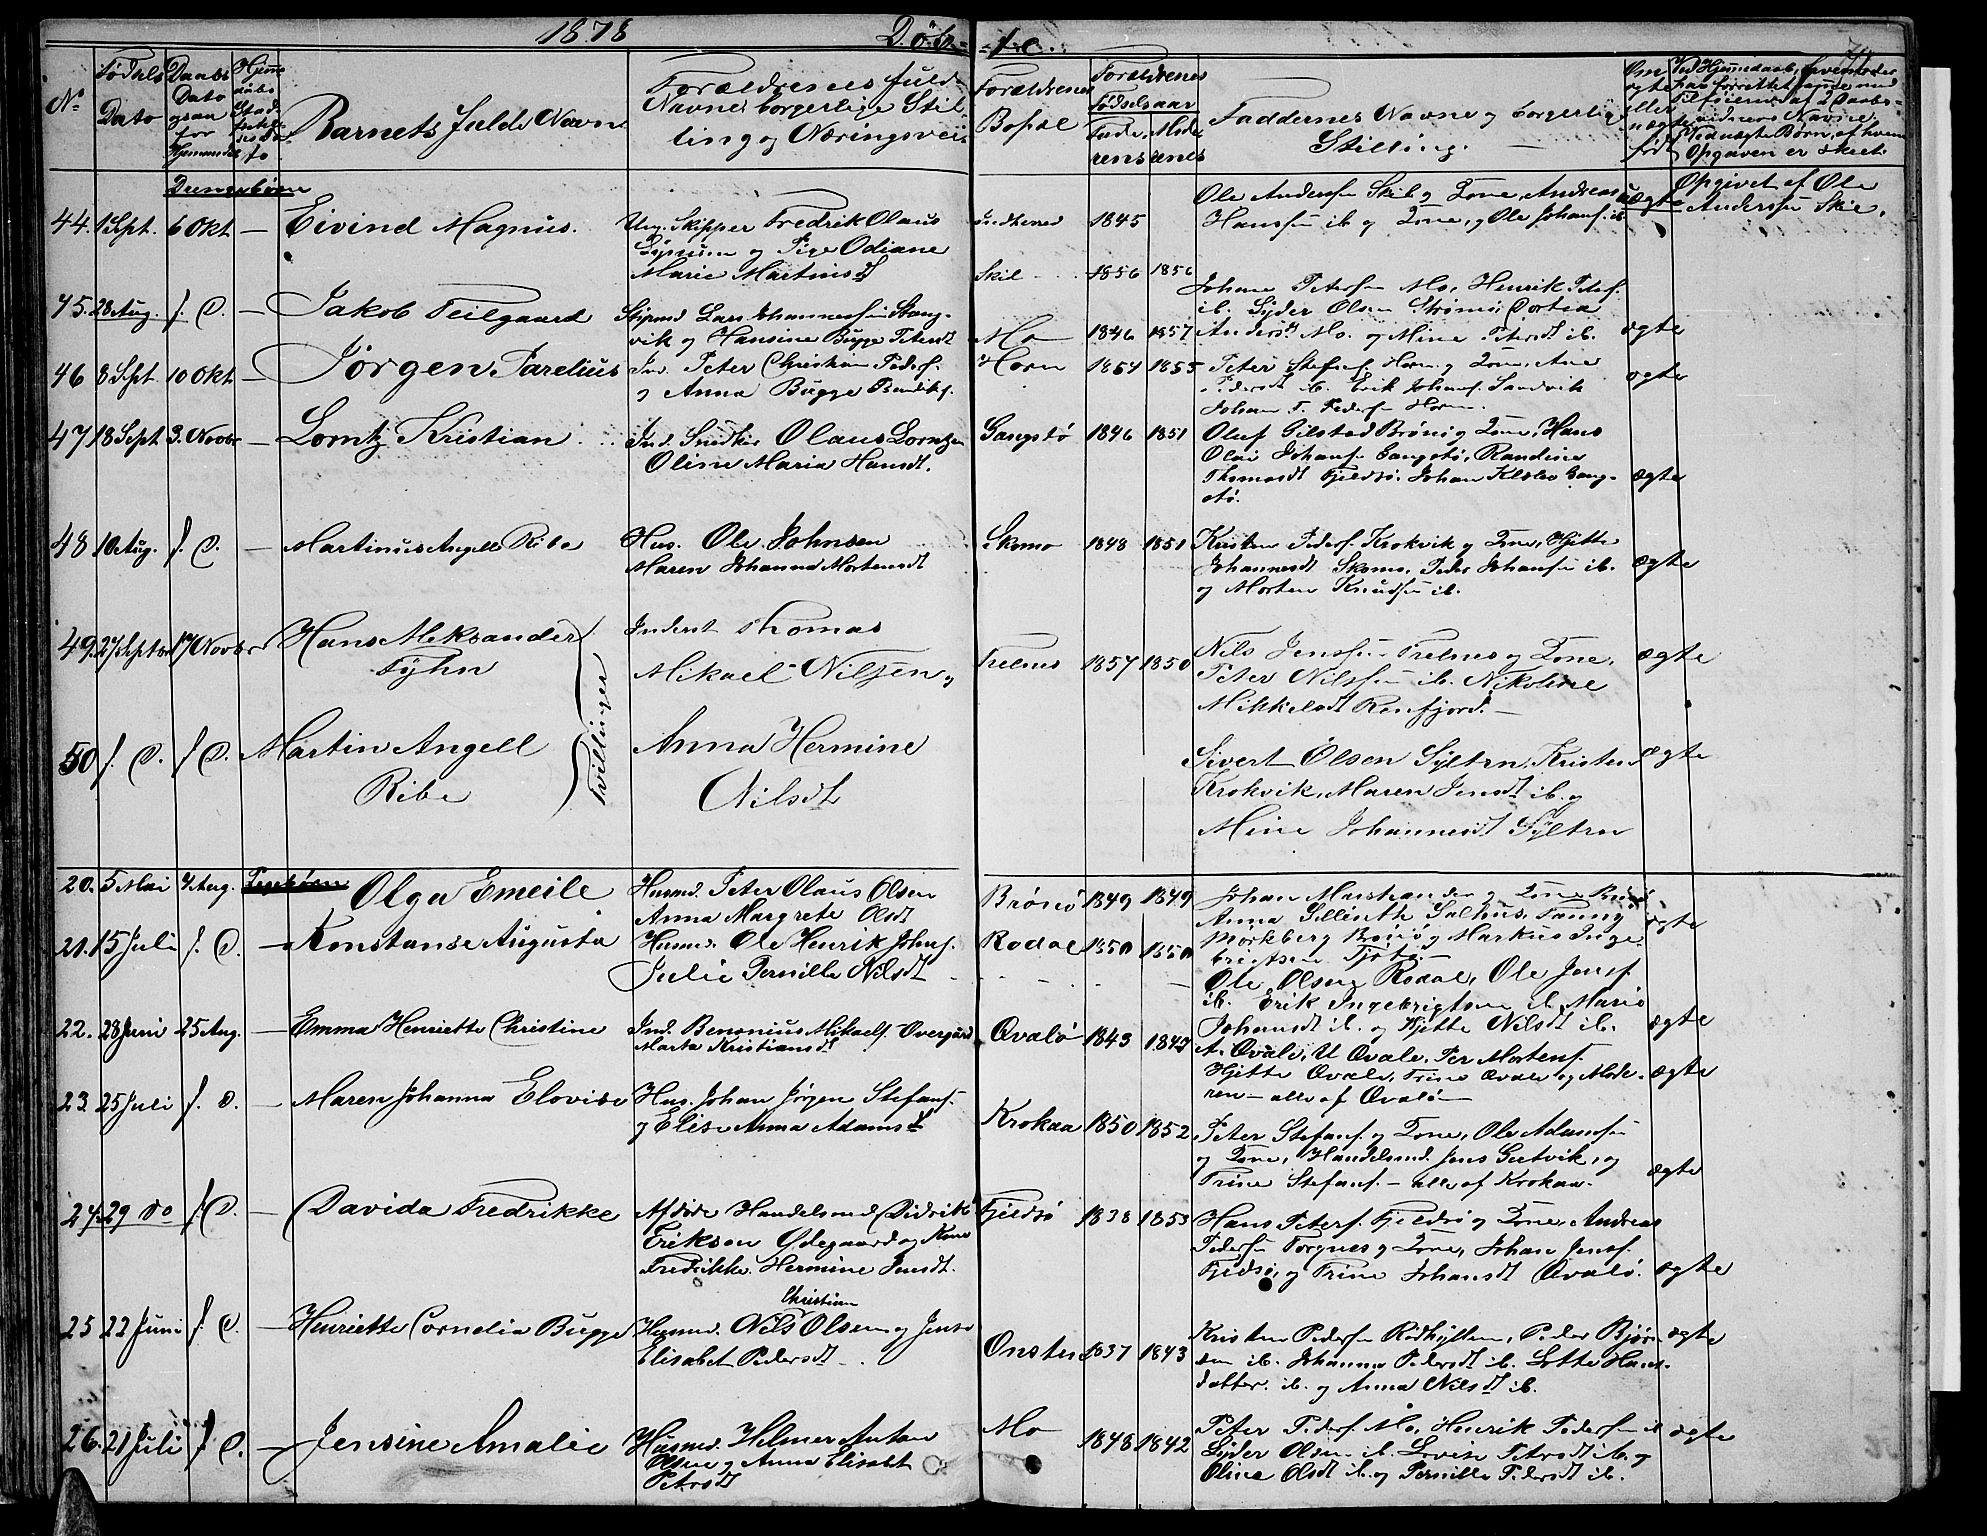 1878 Døb-te.
No
Fødsels Dato
Daabs Dato
Barnets fulde Navn
Forældrenes fulde Navne, borgerlige Stilling og Næringsvei
Forældrenes Bopæl
Forældrenes Fødselsaar
Faderens Moderens
Faddernes Navne og borgerlige Stilling.
Om ægte eller uægte født
Opgaven er skeet.
Drengebørn
44. 1 Sept. 6 Okt — Eivind Magnus. Ung. Skipper Fredrik Olaus 1845
og Pige Odiane
Marie Martinsdt Skil 1856 1856
Ole Anderssen Skil og Kone, Andreas
Hanssen ib og Kone, og Ole Johans. ib
uægte
Opgivet af Ole Anderssen Skil.
45. 28 Aug. f. D. — Jakob Teilgaard Lars Johannessen Stangvik og Hansine Bugge Petersdt Mo 1846 1857
Johan Petersen Mo, Henrik Peters.
ib. Lyder Olsen
Andersdt Mo. og Mine Petersdt ib.
ægte
46 8 Sept 10 Okt — Jørgen Parelius Ind. Peter Christian Peders.
og Anna Bugge Bendiks. Horn 1854 1855
Peter Stefans. Horn og Kone, Ane
Pedersdt ib. Erik Johans. Sandvik
Johan P. Pedersen Horn.
ægte
47 18 Sept 3. Novbr — Lorntz Kristian Ind. Snedker Olaus Lorntzen
Oline Maria Hansdt. Gangstø 1846 1851
Oluf Gilstad Brønø og Kone, Hans
Olai Johans. Gangstø, Randine
Thomasdt Fjeldsø. Johan Gangstø.
ægte
48 10 Aug. f. D. — Martinus Angell Ribe Hus. Ole Johnsen
Maren Johanna Mortensdt Skomo 1848 1851
Kristen Peders. Krokvik og Kone, Hjette
Johannesdt Skomo, Peder Johansen ib.
og Morten Knudsen ib.
ægte
49. 27 Septbr 17 Novbr Hans Aleksander
Fyhn
Inderst Thomas
Mikael Nilsen og
Trelnes 1857 1850
Nils Jenssen Trelnes og Kone,
Peter Nilssen ib. Nikoline
Mikkelsdt Rosfjord. —
ægte
Tvillinger
50 f. D. f. D. Martin Angell
Ribe
Anna Hermine
Nilsdt
Sivert Olsen Sylten, Kristen
Krokvik, Maren Jensdt ib. og
Mine Johannesdt Sylten
ægte
Pigebørn
20. 5 Mai 4 Aug. Olga Emeile Husmd. Peter Olaus Olsen
Anna Margrete Olsdt Brønø 1849 1849
Johan og Kone Brønø
Anna Salhus, Fanny
Mørkberg Brønø og Markus Ingebrigtsen Tjøtø.
ægte
21. 15 Juli f. D. — Konstanse Augusta Husmd. Ole Henrik Johns.
Julie Pernille Nilsdt Rodal 1850 1850
Ole Olsen Rodal, Ole Jens.
ib. Erik Ingebrigtsen ib, Marie
Johansdt ib. og Hjette Nilsdt ib.
ægte
22. 28 Juni 25 Aug. — Emma Henriette Christine Ind. Benonius Mikaels. Overgård
Marta Kristiansdt Qvalø 1843 1843
A. Qvale, U Qvale, Per Mortens.
Hjette Qvale, Trine Qvale og Moderen — alle af Qvalø —
ægte
23. 25 Juli f. D. — Maren Johanna Elovise Hus. Johan Jørgen Stefans.
og Elise Anna Adamsdt Krokaa 1850 1852
Peter Stefans. og Kone, Ole Adamsen
og Kone, Handelsmd. Jens Geitvik, og
Trine Stefans. — alle af Krokaa.
ægte
24. 29 do f. D. — Davida Fredrikke Afdøde Handelsmd Didrik
Erikson Ødegaard og Kone
Fredrikke Hermine Jensdt. Fjeldsø 1838 1853
Hans Peters. Fjeldsø og Kone, Andreas
Pedersen Torgnes og Kone, Johan Jens.
Fjeldsø, og Trine Johansdt Qvalø.
ægte
25 22 Juni f. D. — Henriette Cornelia Bugge Husmd. Nils Christian Olsen og Jensa
Elisabet Pedersdt Onsten 1837 1843
Kristen Pedersen Rødhylten, Peder Bjørn-
sen ib. Johanna Pedersdt ib. Lotte Hans-
datter ib. og Anna Nilsdt ib.
ægte
26. 21 Juli f. D. — Jensine Amalie Husmd. Hilmer Anton
Olsen og Anna Elisabet
Petersdt Mo 1848 1842
Peter Peders. Mo, Henrik Pedersen ib
Lyder Olsen ib. Lovise Petersdt ib. og
Oline Olsdt ib. og Pernille Pedersdt ib.
ægte